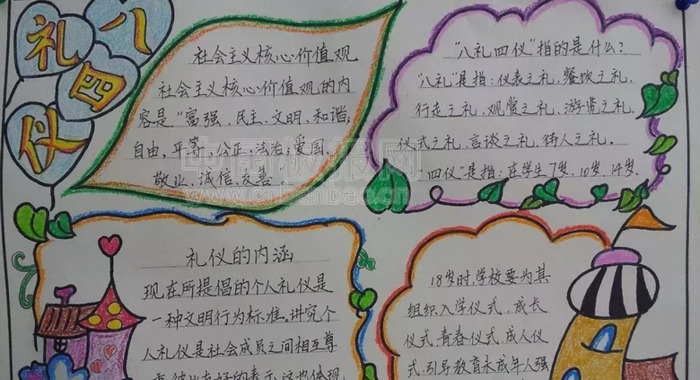 八
礼
四
仪
社会主义核心价值观
社会主义核心价值观的内
容是“富强、民主、文明、和谐,
自由,平等,公正,法治;爱国,
敬业,诚信,友善
“八礼四仪”指的是什么?
“八礼”是指:仪表之礼,餐饮之礼,
行走之礼,观赏之礼,游览之礼,
仪式之礼,言谈之礼,待人之礼。
“四仪”是指:在学生7岁、10岁、14岁、
礼仪的内涵
现在所提倡的个人礼仪是
一种文明行为标准。讲究个
人礼仪是社会成员之间相互尊
18岁时,学校要为其
组织入学仪式,成长
仪式,青春仪式,成人仪
式,引导教育未成年人强